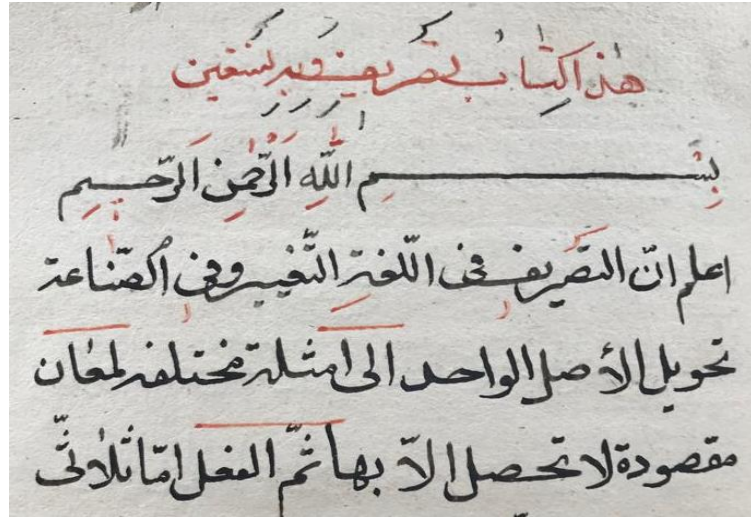 هذا كتاب تصريف وبه نستعين
بِسْمِ اللّٰهِ الرَّحْمٰنِ الرَّحِيمِ
اعلم انّ التصريف فى اللّغة التّغيير وفى الصّناعة
تحويل الأصل الواحد الى امثلة مختلفة لمعان
مقصودة لا تحصل الاّ بها ثمّ الفعل امّا ثلاثىّ